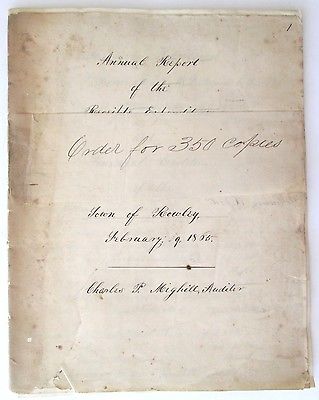 1
Annual Report
of the
Receipts
Order for 350 copies
Town of Rowley.
February, 9, 1856.
Charles P. Mighill, Auditor